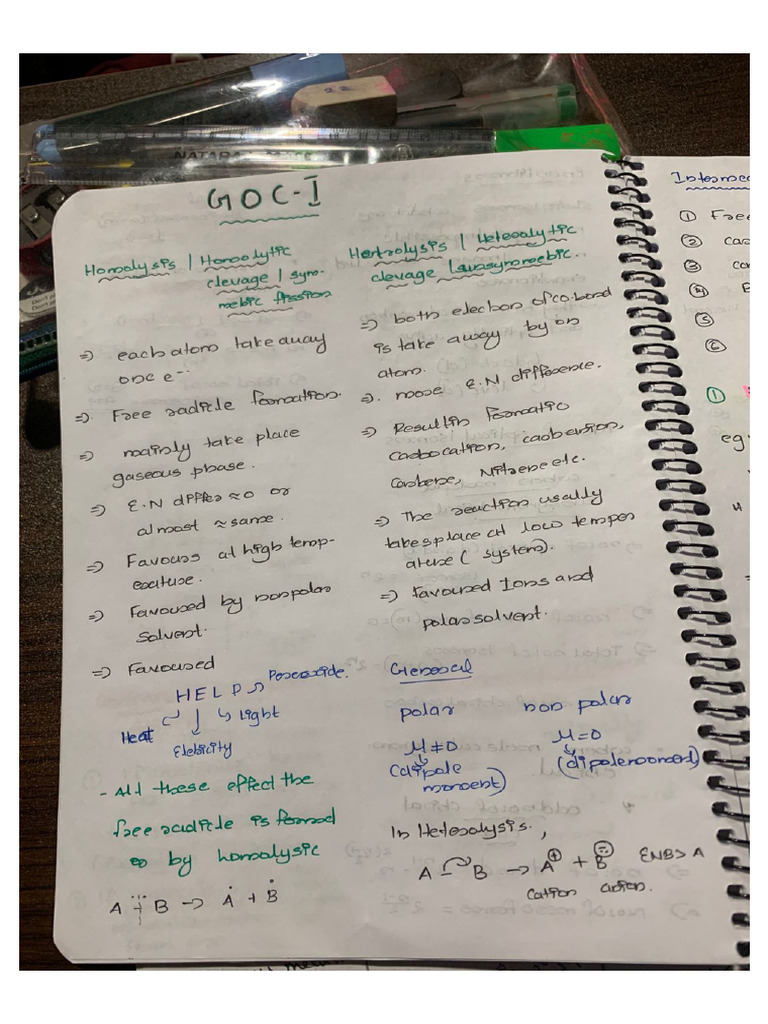 NATARA
GOC-I
Homolysis / Homolytic
clevage / sym-
metric fission
=> each atom take away
one e⁻.
=> Free radicle formation.
=> mainly take place
gaseous phase.
=> E.N differ ≈ 0 or
almost ≈ same.
=> Favours at high temp-
erature.
=> Favoured by nonpolar
Solvent.
=> Favoured
HELP → Peroxide.
Heat
Light
Eletricity
- All these effect the
free radicle is formed
by homolysic
A ÷ B → Ȧ + Ḃ
Hertrolysis / Heteolytic
clevage / unsymmetric.
=> both electron of co. bond
is take away by on
atom.
=>. more E.N. difference.
=> Result in formatio
Carbocation, carbanion,
Carbene, Nitrene etc.
=> The reaction usally
takes place at low temper
ature ( system).
=> favoured Ions and
polar solvent.
General
polar non polar
μ≠0 μ=0
(dipole
moment)
(dipole moment)
In Heterolysis. ,
A - B → A⊕ + B⊖ ENB > A
Cation anion.
① Free
②
③
④
⑤
⑥
①
eg